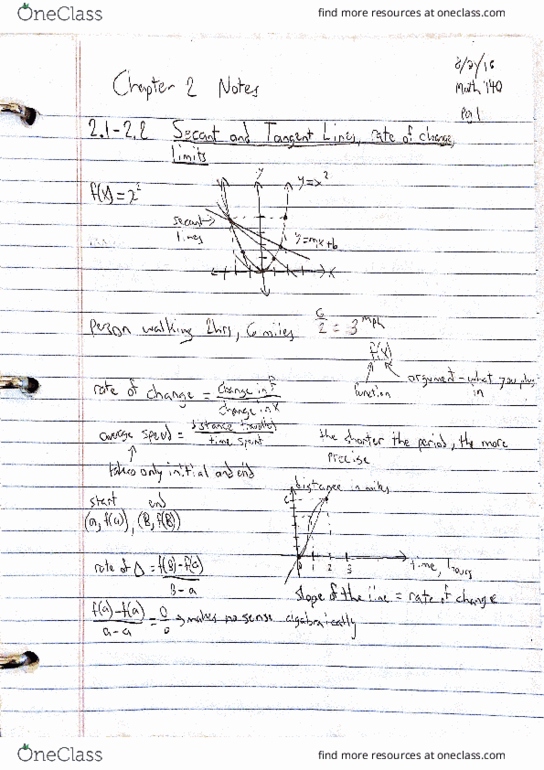 OneClass find more resources at oneclass.com
8/21/16
Chapter 2 Notes
Math 140
Pg 1
2.1-2.2 Secant and Tangent Lines, rate of change,
Limits
f(x)=2²
y
y=x²
secant
lines
y=mx+b
x
person walking 2hrs, 6 miles 6/2 = 3 mph
f(x)
function
argument - what you plug
in
rate of change = change in F / change in x
average speed = distance traveled / time spent
the shorter the period, the more
precise
takes only initial and end
start end
(a, f(a)), (B, f(B))
distance in miles
6
1 2 3
time, hours
rate of Δ = f(B)-f(a) / B-a
slope of the line = rate of change
f(a)-f(a) / a-a = 0/0 → makes no sense algebraically
OneClass find more resources at oneclass.com